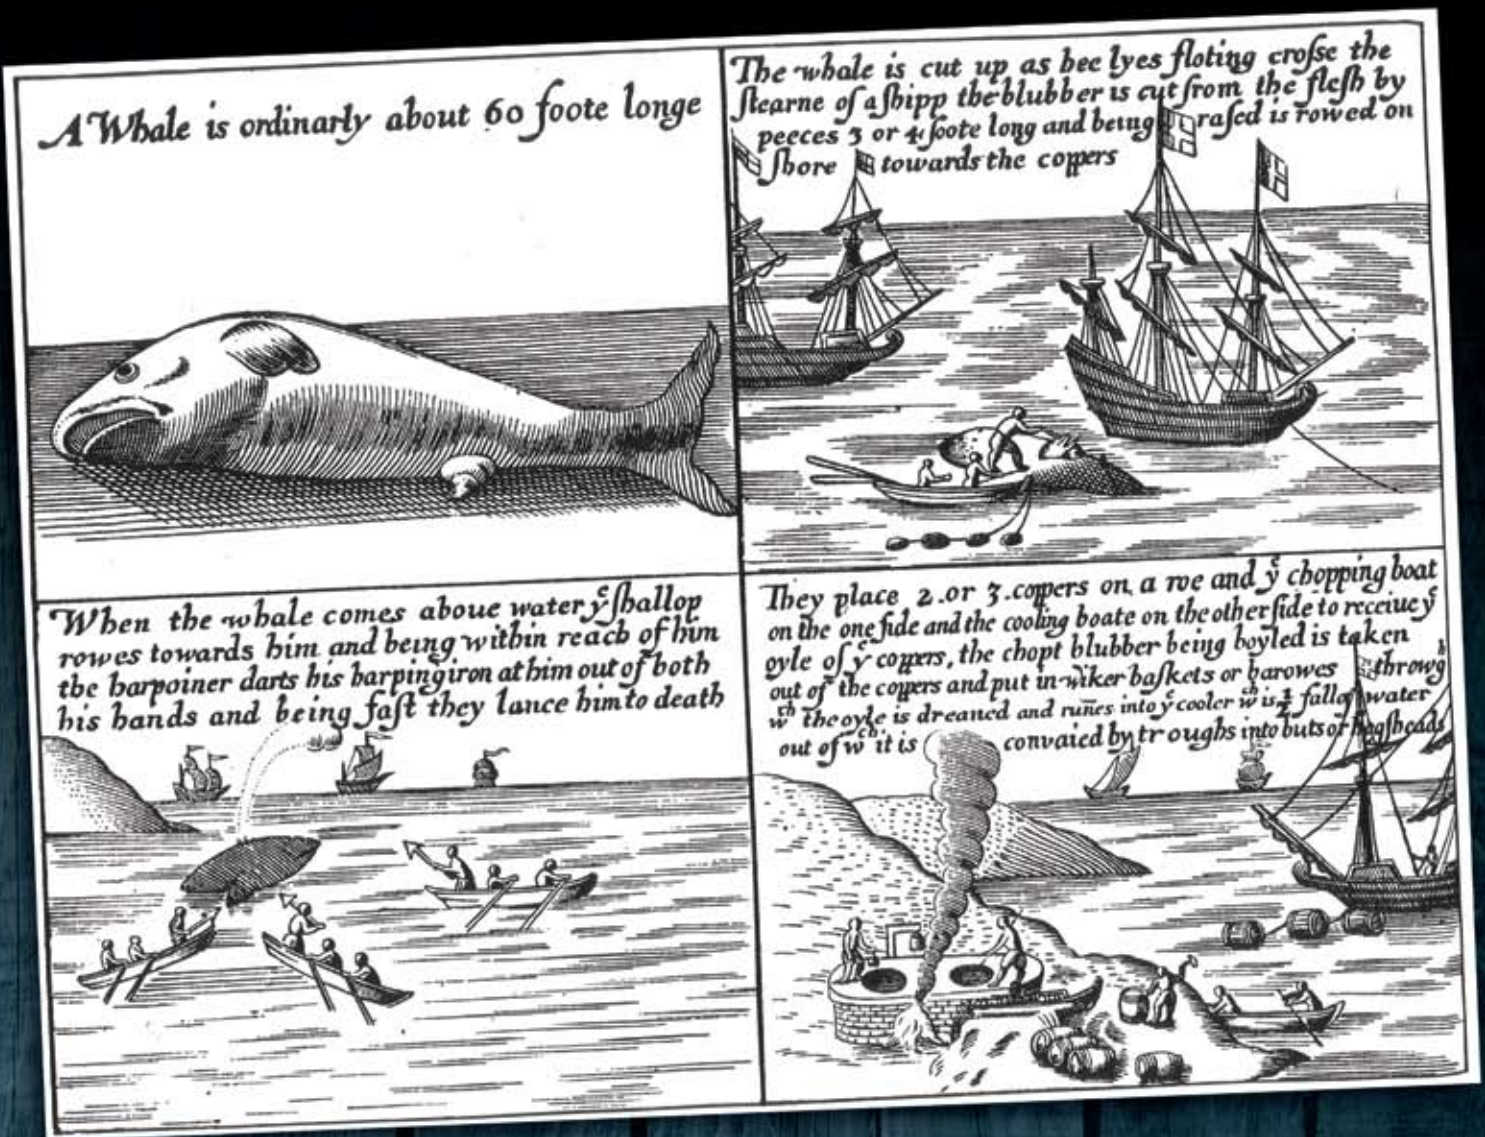 A Whale is ordinarly about 60 foote longe
The whale is cut up as hee lyes floting crosse the
stearne of a shipp the blubber is cut from the flesh by
peeces 3 or 4 foote long and being rased is rowed on
shore towards the coppers
When the whale comes aboue water yͤ shallop
rowes towards him and being within reach of him
the harpoiner darts his harpingiron at him out of both
his hands and being fast they lance him to death
They place 2. or 3. coppers on a roe and yͤ chopping boat
on the one side and the cooling boate on the other side to receiue yͤ
oyle of yͤ coppers, the chopt blubber being boyled is taken
out of the coppers and put in wiker baskets or barowes throwgͪ
wͨͪ the oyle is dreaned and runes into yͤ cooler wͨͪ is ½ full of water
out of wͨͪ it is convaied by troughs into buts or hogsheads